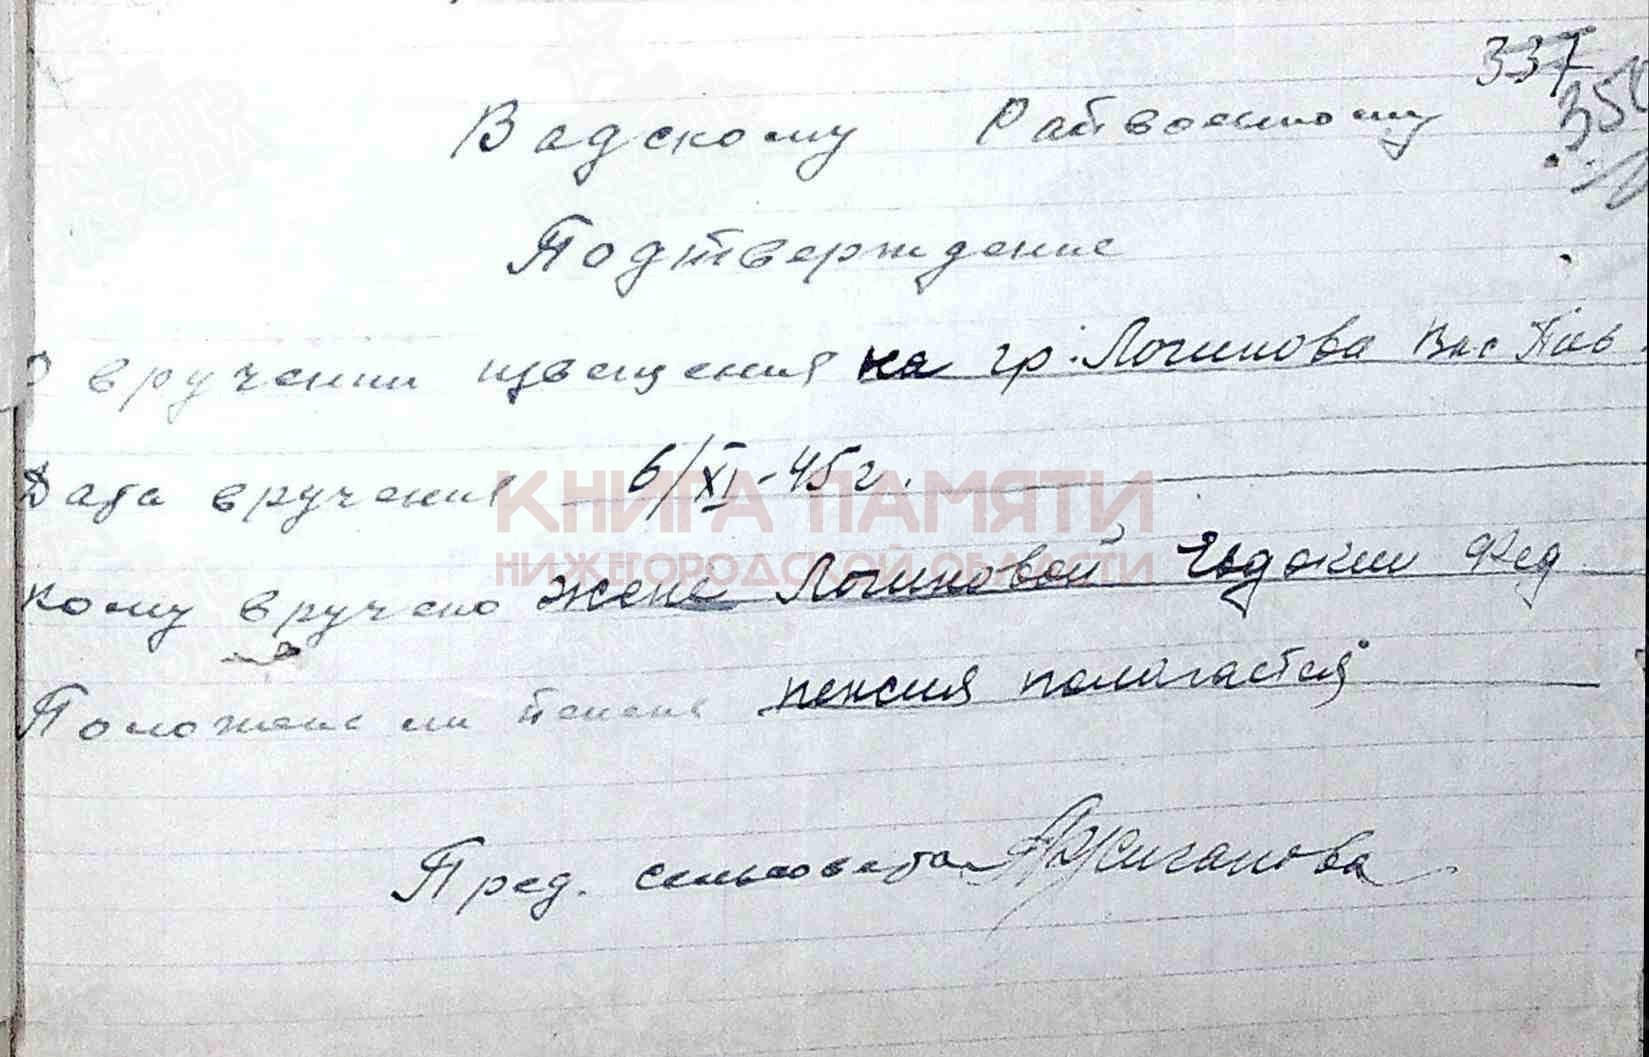 337
350
Вадскому Райвоенкому
Подтверждение
О вручении извещения на гр. Логинова Вас Пав.
Дата вручения 6/XI-45г.
КНИГА ПАМЯТИ
НИЖЕГОРОДСКОЙ ОБЛАСТИ
Кому вручено жене Логиновой Евдокии Фед
Положена ли пенсия пенсия полагается
Пред. сельсовета Жиганова